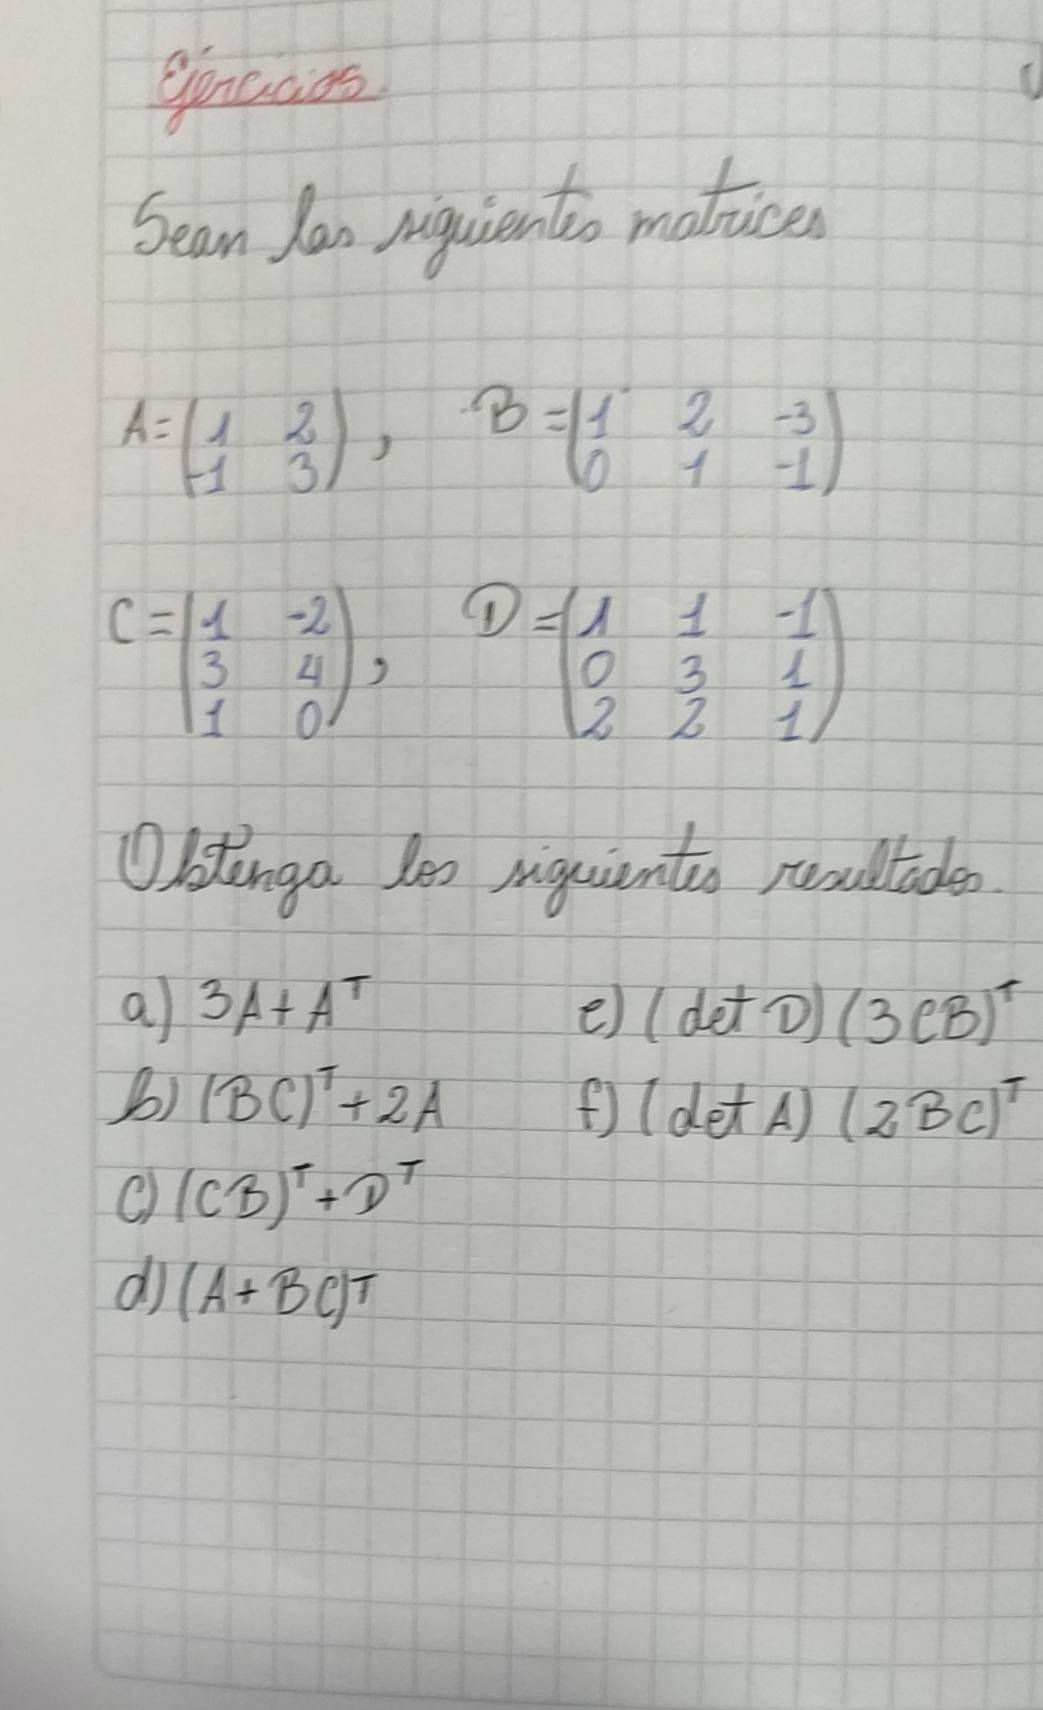 Ejercicios
Sean las siguientes matrices
A = ( 1 2 ), B = ( 1 2 -3 )
( -1 3 ) ( 0 1 -1 )
C = ( 1 -2 ), D = ( 1 1 -1 )
( 3 4 ) ( 0 3 1 )
( 1 0 ) ( 2 2 1 )
Obtenga los siguientes resultados.
a) 3A + Aᵀ
b) (BC)ᵀ + 2A
c) (CB)ᵀ + Dᵀ
d) (A + BC)ᵀ
e) (det D) (3CB)ᵀ
f) (det A) (2BC)ᵀ